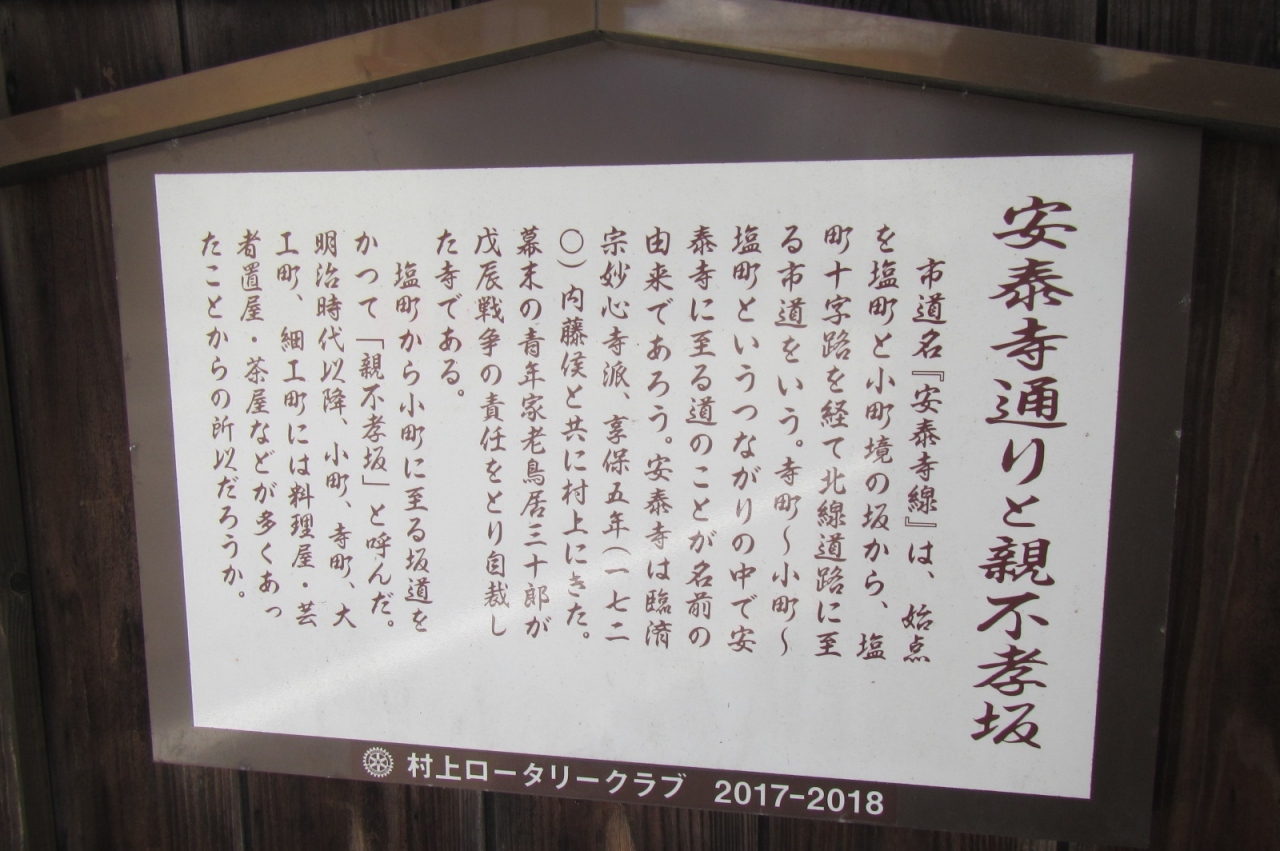 安泰寺通りと親不孝坂
市道名『安泰寺線』は、始点
を塩町と小町境の坂から、塩
町十字路を経て北線道路に至
る市道をいう。寺町～小町～
塩町というつながりの中で安
泰寺に至る道のことが名前の
由来であろう。安泰寺は臨済
宗妙心寺派、享保五年（一七二
〇）内藤侯と共に村上にきた。
幕末の青年家老鳥居三十郎が
戊辰戦争の責任をとり自裁し
た寺である。
塩町から小町に至る坂道を
かつて「親不孝坂」と呼んだ。
明治時代以降、小町、寺町、大
工町、細工町には料理屋・芸
者置屋・茶屋などが多くあっ
たことからの所以だろうか。
村上ロータリークラブ 2017-2018